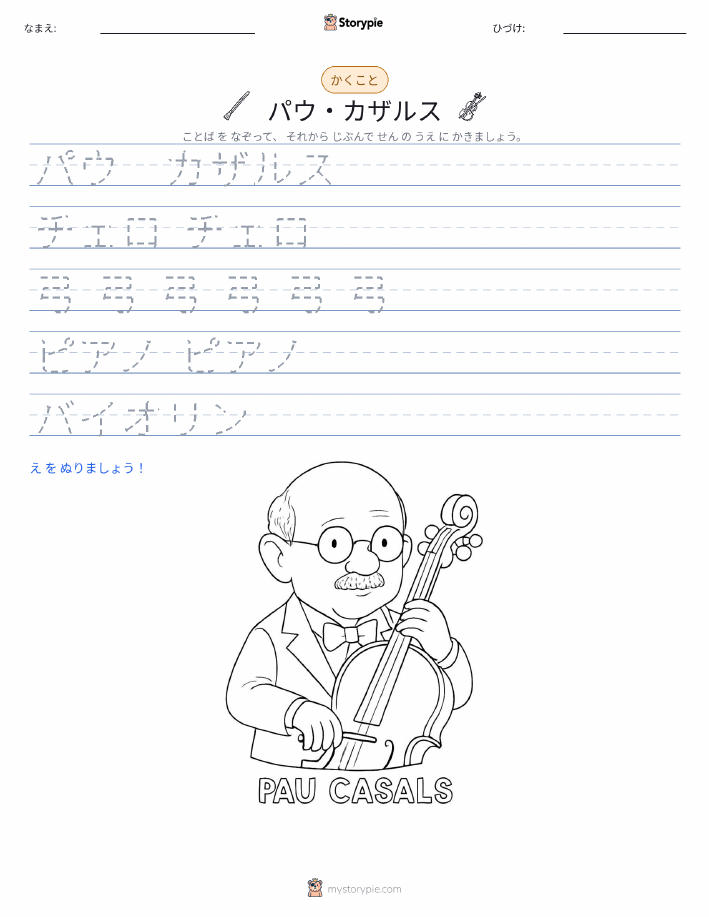 なまえ:
Storypie
ひづけ:
かくこと
パウ・カザルス
ことば を なぞって、 それから じぶんで せん の うえ に かきましょう。
パウ カザルス
チェロ チェロ
弓 弓 弓 弓 弓 弓
ピアノ ピアノ
バイオリン
え を ぬりましょう！
PAU CASALS
mystorypie.com